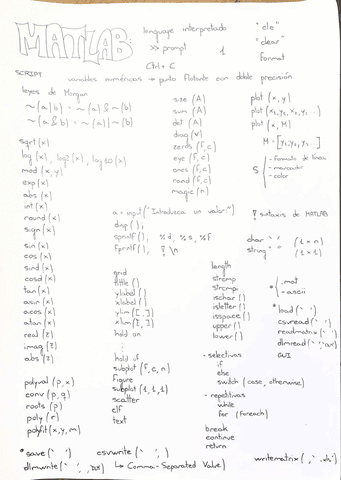 MATLAB:
lenguaje interpretado
>> prompt
1
"clc"
"clear"
format
Ctrl + C
SCRIPT
variables numéricas → punto flotante con doble precisión
leyes de Morgan
~(a|b) = ~(a) & ~(b)
~(a&b) = ~(a) | ~(b)
sqrt(x)
log(x), log2(x), log10(x)
mod(x,y)
exp(x)
abs(x)
int(x)
round(x)
sign(x)
sin(x)
cos(x)
sind(x)
cosd(x)
tan(x)
asin(x)
acos(x)
atan(x)
real(z)
imag(z)
abs(z)
polyval(p,x)
conv(p,q)
roots(p)
poly(r)
polyfit(x,y,m)
size(A)
sum(A)
det(A)
diag(V)
zeros(f,c)
eye(f,c)
ones(f,c)
rand(f,c)
magic(n)
plot(x,y)
plot(x1,y1,x2,y2,...)
plot(x,M)
M=[y1,y2,...]
S
- formato de línea
- marcador
- color
a = input("Introduzca un valor:")
disp();
sprintf(); %d, %s, %f
fprintf(); ! \n
! sintaxis de MATLAB
char ' ' (1×n)
string " " (1×1)
grid
title()
ylabel()
xlabel()
ylim([,])
xlim([,])
hold on
⋮
hold off
subplot(f,c,n)
figure
subplot(1,1,1)
scatter
clf
text
length
strcmp
strcmpi
ischar()
isletter()
isspace()
upper()
lower()
* .mat
-ascii
*load(' ')
csvread(' ')
readmatrix(' ')
dlmread(' ','\t')
GUI
- selectivas
if
else
switch (case, otherwise)
- repetitivas
while
for (foreach)
break
continue
return
*save(' ')
csvwrite(' ', )
dlmwrite(' ', ,'\t')
↳ Comma-Separated Value)
writematrix( ,'.xls')